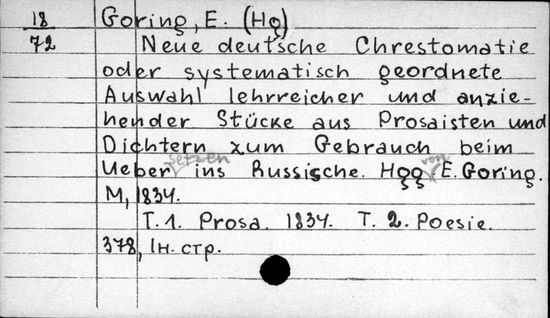 18/72 Goring, E. (Hg)
Neue deutsche Chrestomatie
oder systematisch geordnete
Auswahl lehrreicher und anzie-
hender Stücke aus Prosaisten und
Dichtern zum Gebrauch beim
Uebersetzen ins Russische. Hgg von E. Goring.
M, 1834.
T. 1. Prosa. 1834. T. 2. Poesie.
378, Iн. стр.